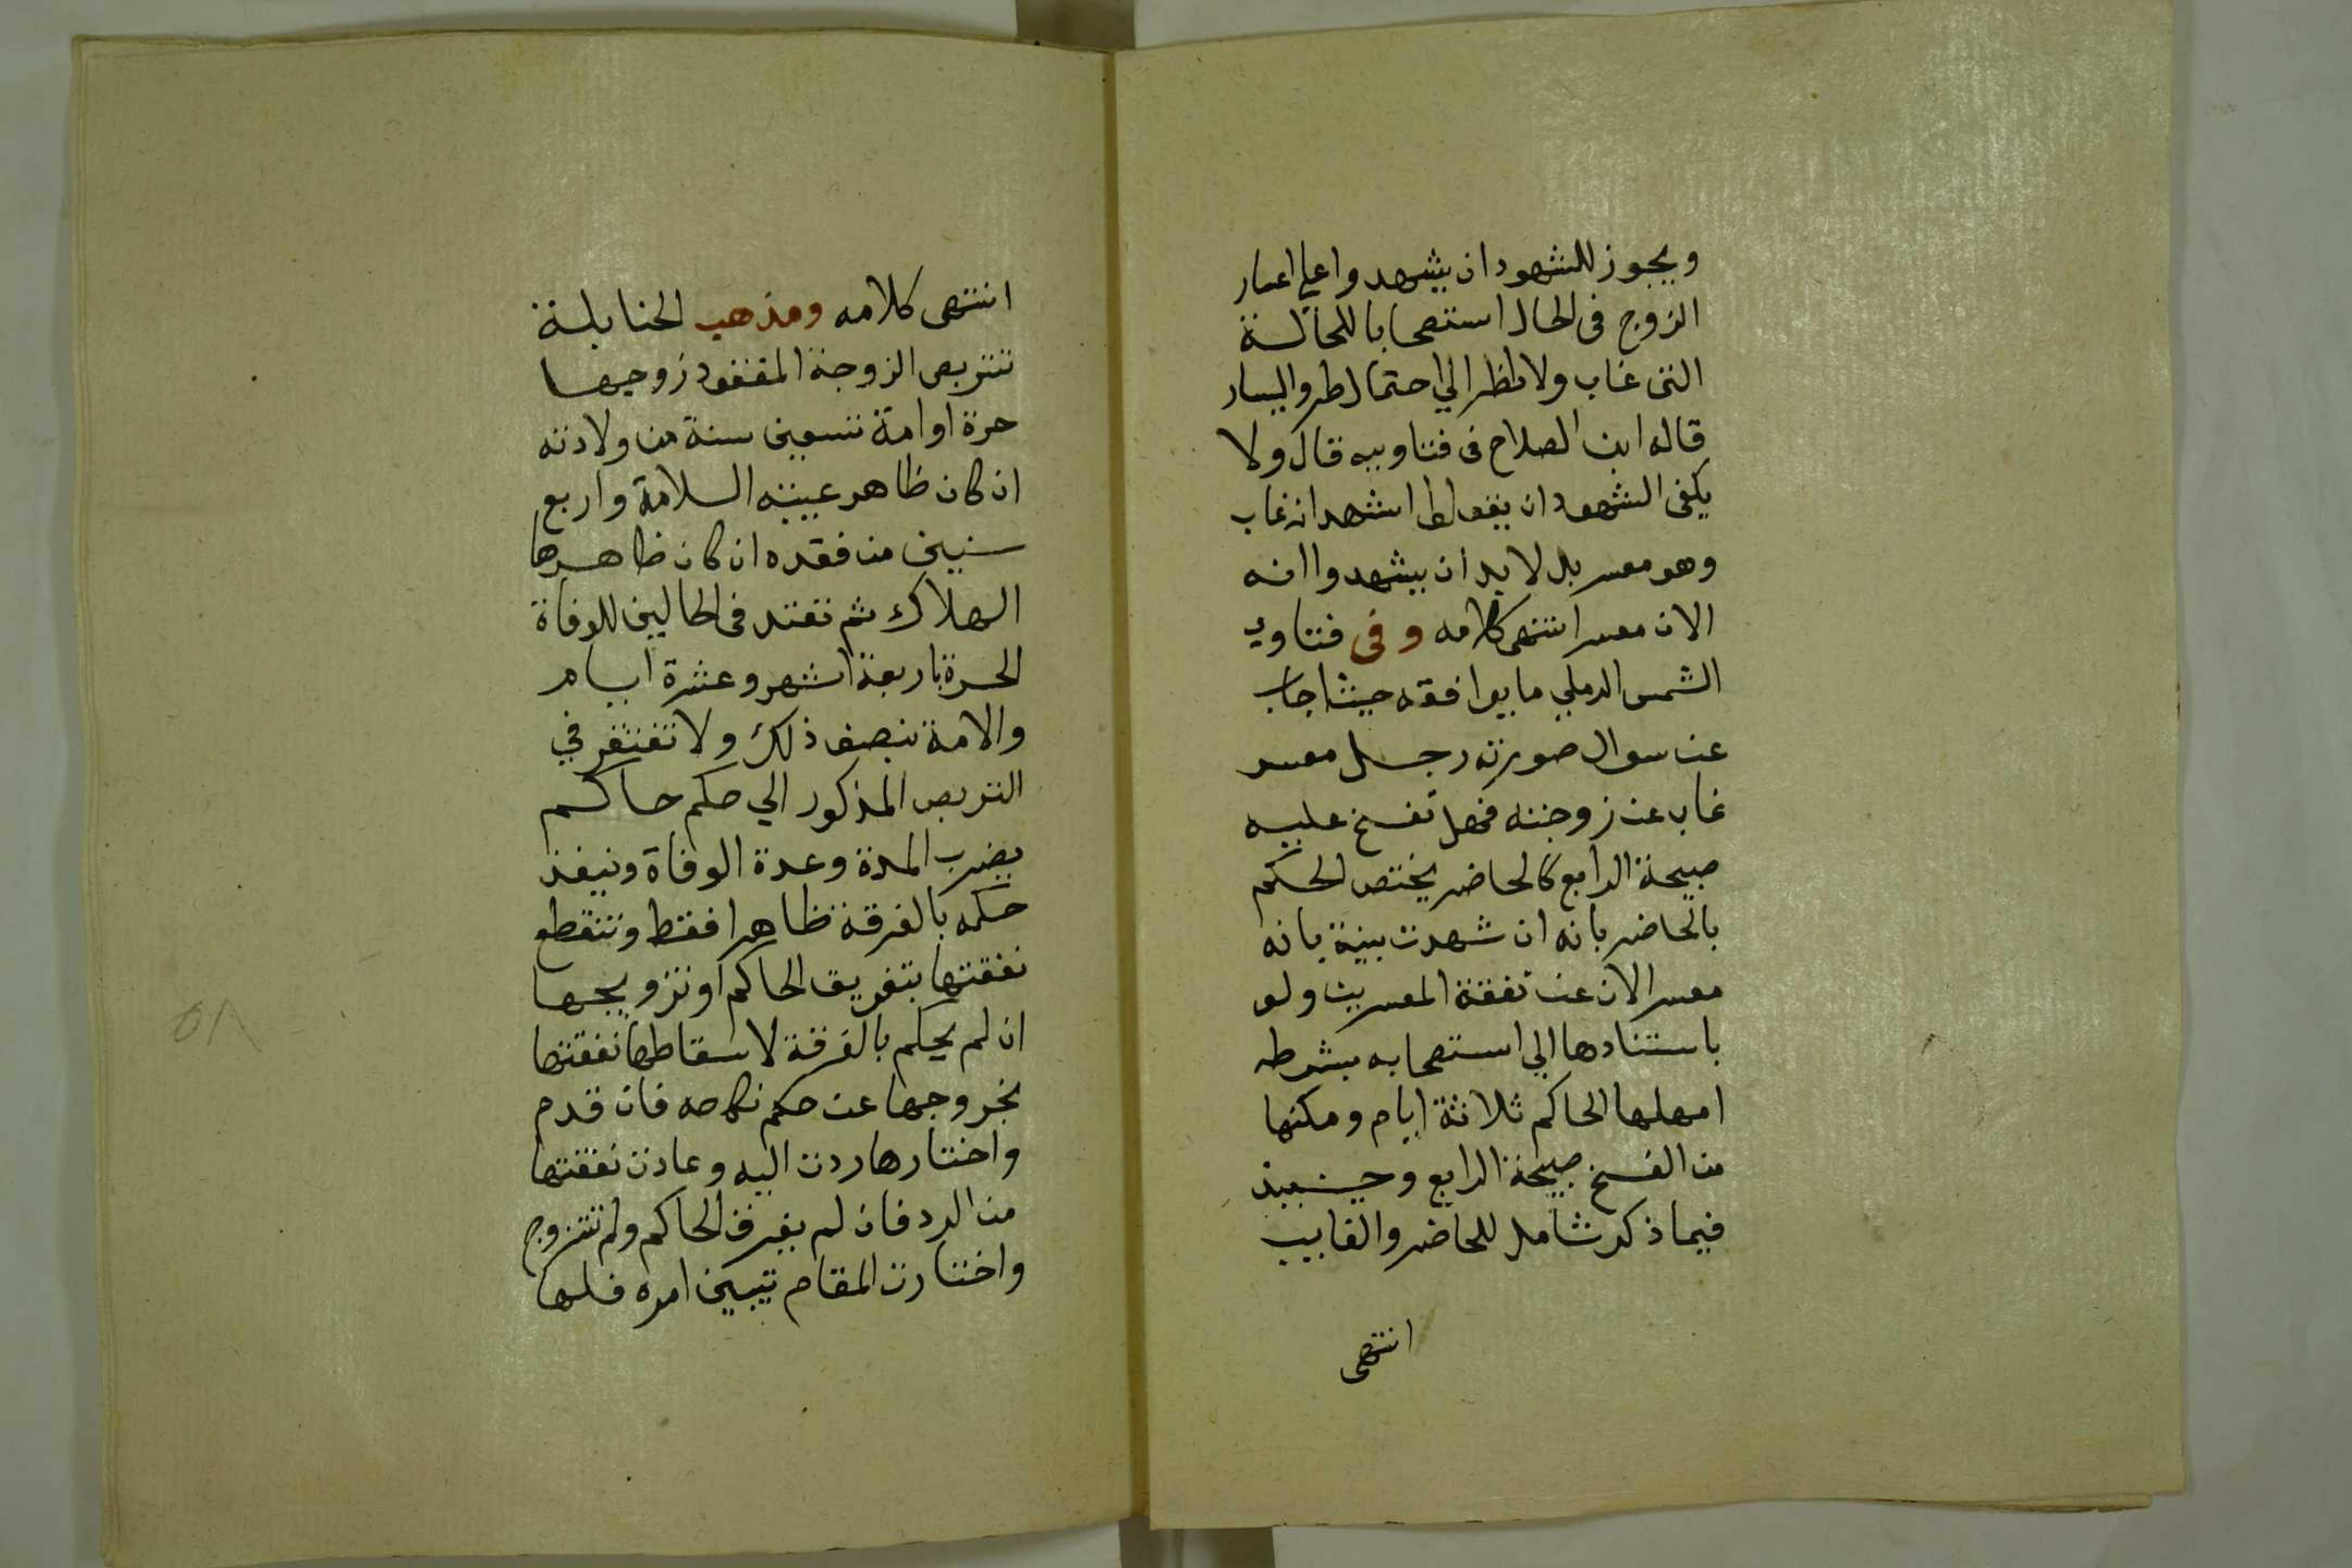 ويجوز للشهود ان يشهدوا علي اعسار
الزوج فى الحال استصحابا للحالة
التى غاب ولا نظر الي احتمال طرو اليسار
قاله ابن الصلاح فى فتاويه قال ولا
يكفى الشهود ان يقولوا شهد انه غاب
وهو معسر بل لا بد ان يشهدوا انه
الان معسر انتهى كلامه وفى فتاوي
الشمس الرملي ما يوافقه حيث اجاب
عن سوال صورته رجل معسر
غاب عن زوجته فهل تفسخ عليه
صبيحة الرابع كالحاضر يختص الحكم
بالحاضر بانه ان شهدت بينة بانه
معسر الان عن نفقة المعسرين ولو
باستنادها الي استصحابه بشرطه
امهلها الحاكم ثلاثة ايام ومكنها
من الفسخ صبيحة الرابع وحينيذ
فيما ذكر شامل للحاضر والغايب
انتهى
انتهى كلامه ومذهب الحنابلة
تتربص الزوجة المفقود زوجها
حرة او امة تسعين سنة من ولادته
ان كان ظاهر غيبته السلامة واربع
سنين من فقده ان كان ظاهرها
الهلاك ثم تعتد فى الحالين للوفاة
الحرة باربعة اشهر وعشرة ايام
والامة بنصف ذلك ولا تفتقر في
التربص المذكور الي حكم حاكم
يضرب المدة وعدة الوفاة وينفذ
حكمه بالفرقة ظاهرا فقط وتنقطع
نفقتها بتفريق الحاكم او تزويجها
ان لم يحكم بالفرقة لاسقاطها نفقتها
بخروجها عن حكم نكاحه فان قدم
واختارها ردت اليه وعادت نفقتها
من الرد فان لم يفرق الحاكم ولم تتزوج
واختارت المقام تتبين امره فلها
٥٨